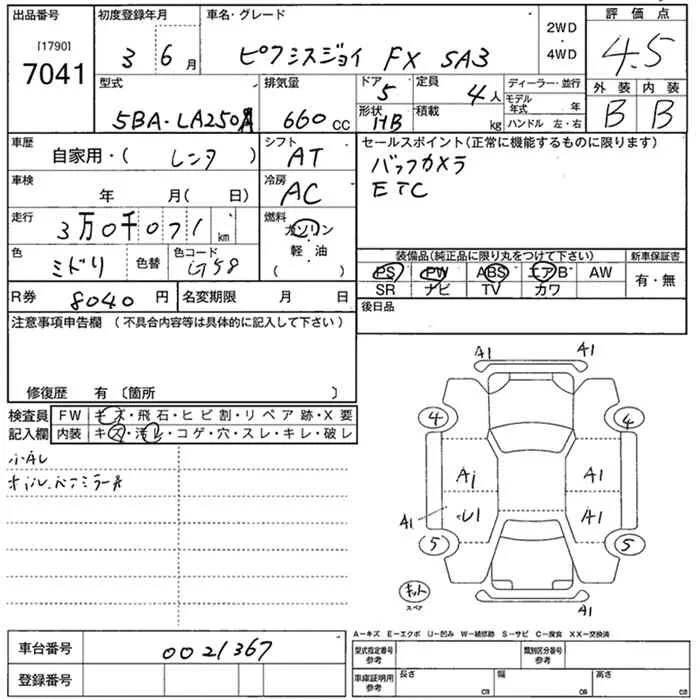 出品番号 初度登録年月 車名・グレード 評価点
[1790]
7041
3 6月 ピクシスジョイ FX SA3
2WD
4WD
4.5
型式 排気量 ドア 5 定員 4人 ディーラー・並行
外装 内装
5BA-LA250A 660cc
形状 HB 積載 kg
モデル年式 年
ハンドル 左・右
B B
車歴 自家用・( レンタ )
シフト AT
セールスポイント(正常に機能するものに限ります)
バックカメラ
ETC
車検 年 月( 日)
冷房 AC
走行 3万0千071km
燃料
ガソリン
軽油
( )
色 ミドリ 色替 色コード G58
装備品(純正品に限り丸をつけて下さい) 新車保証書
PS PW ABS エアB AW
SR ナビ TV カワ
有・無
R券 8040円 名変期限 月 日
後日品
注意事項申告欄 (不具合内容等は具体的に記入して下さい)
修復歴 有 〔箇所 〕
検査員 FW キズ・飛石・ヒビ割・リペア跡・X要
記入欄 内装 キズ・汚レ・コゲ・穴・スレ・キレ・破レ
A1 A1
4 4
A1 A1
A1 U1 A1
5 5
キット
スペア
A1
A-キズ E-エクボ U-凹み W-補修跡 S-サビ C-腐食 XX-交換済
車台番号 0021367
型式指定番号 参考 類別区分番号 参考
登録番号
車庫証明用 参考 長さ cm 幅 cm 高さ cm